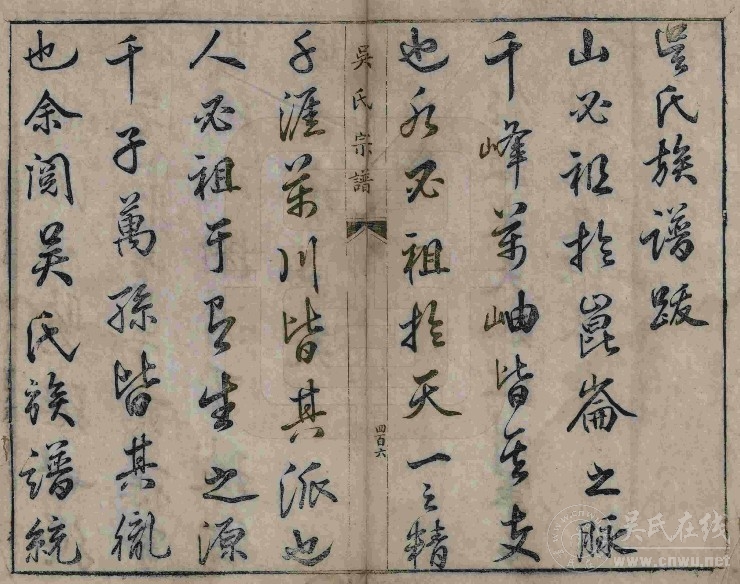 吳氏族譜跋
山必祖於崑崙之脈
千峰萬岫皆其支
也水必祖於天一之精
吳氏宗譜
四百六
千涯萬川皆其派也
人必祖于有生之源
千子萬孫皆其胤
也余閱吳氏族譜統
吴氏在线
www.cnwu.net